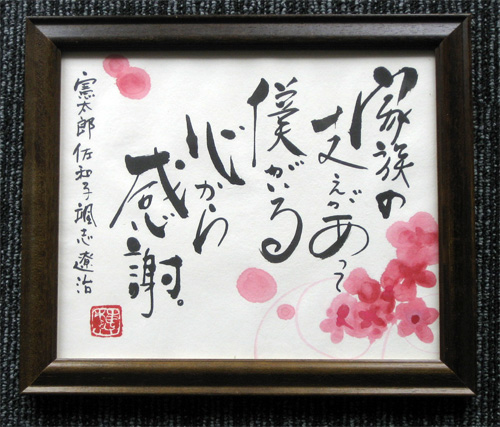 家族の
支えがあって
僕がいる
心から
感謝。
憲太郎 佐和子 颯志 遼治